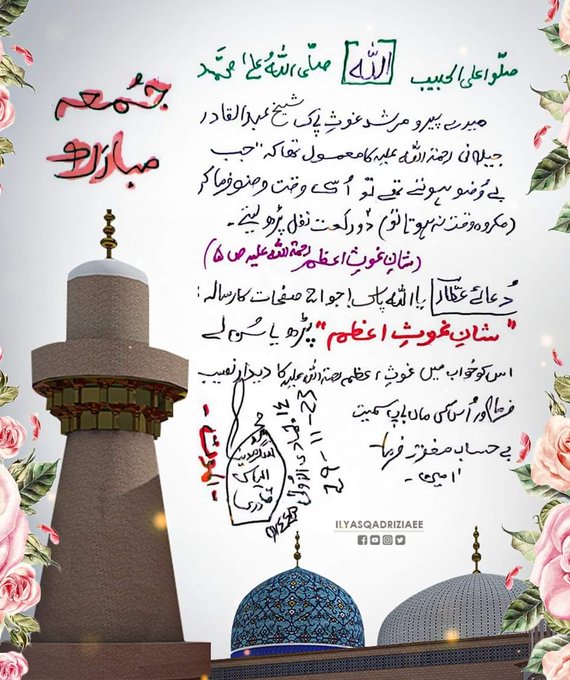 صلّوا علی الحبیب اللہ صلّی اللہُ علٰی محمَّد
جُمُعہ
مبارک
میرے پیر و مرشد غوثِ پاک شیخ عبدالقادر
جیلانی رحمۃ اللہ علیہ کا معمول تھا کہ "جب
بے وُضو ہوتے تھے تو اُسی وقت وضو فرما کر
(مکروہ وقت نہ ہوتا تو) دو رکعت نفل پڑھ لیتے۔
(شانِ غوثِ اعظم رحمۃ اللہ علیہ ص ۵)
دُعائے عطّار یا اللہ پاک! جو صفحات کا رسالہ:
"شانِ غوثِ اعظم" پڑھ یا سُن لے
اس کو خواب میں غوثِ اعظم رحمۃ اللہ علیہ کا دیدار نصیب
فرما اور اُس کی ماں باپ سمیت
بے حساب مغفرت فرما
اٰمین۔
الموت۔
محمد
الیاس
قادری
23-11-29
ILYASQADRIZIAEE